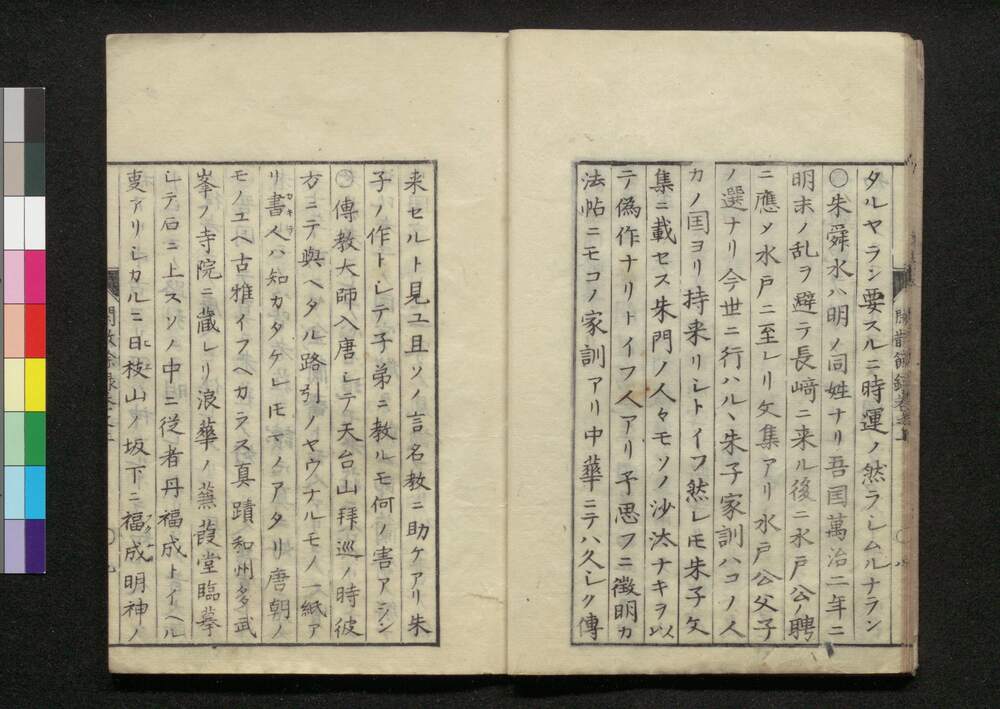 タルヤラン要スルニ時運ノ然ラシムルナラン
〇朱舜水ハ明ノ同姓ナリ吾国萬治二年ニ
明末ノ乱ヲ避テ長﨑ニ来ル後ニ水戸公ノ聘
ニ應メ水戸ニ至レリ文集アリ水戸公父子
ノ選ナリ今世ニ行ハルヽ朱子家訓ハコノ人
カノ国ヨリ持来リシトイフ然レモ朱子文
集ニ載セス朱門ノ人々モソノ沙汰ナキヲ以
テ偽作ナリトイフ人アリ予思フニ徴明カ
法帖ニモコノ家訓アリ中華ニテハ久シク傳
来セルト見ユ且ソノ言名教ニ助ケアリ朱
子ノ作トシテ子弟ニ教ルモ何ノ害アラン
〇傳教大師入唐シテ天台山拜巡ノ時彼
方ニテ與ヘタル路引ノヤウナルモノ一紙ア
リ書人ハ知カタケレモマノアタリ唐朝ノ
モノユヘ古雅イフヘカラス真蹟和州多武
峯ノ寺院ニ藏レリ浪華ノ蒹葭堂臨摹
シテ石ニ上スソノ中ニ従者丹福成トイヘル
叓アリシカルニ日枝山ノ坂下ニ福成明神ノ